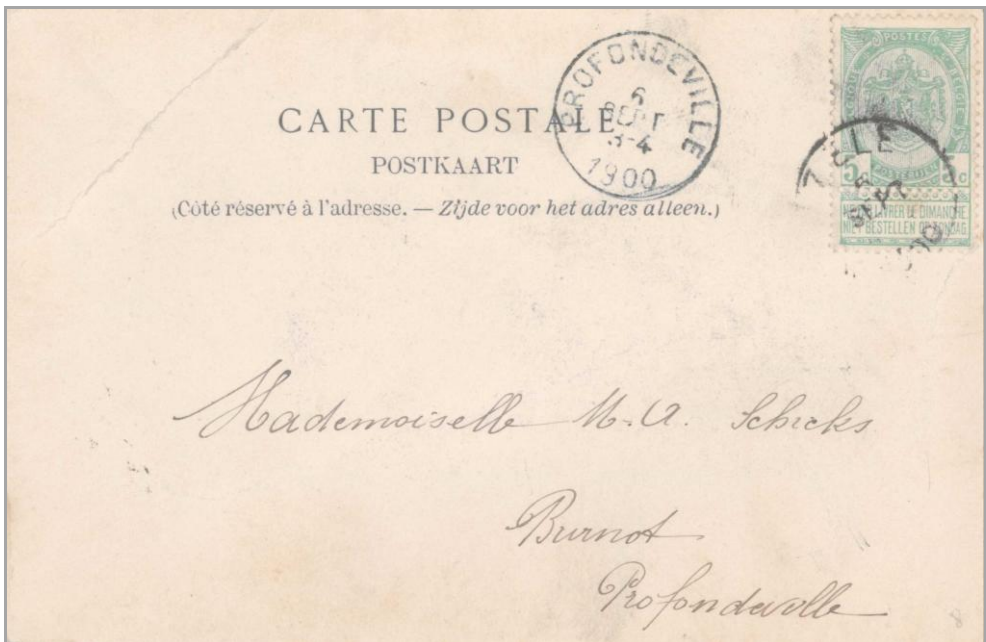 CARTE POSTALE
POSTKAART
(Côté réservé à l'adresse. — Zijde voor het adres alleen.)
PROFONDEVILLE
6
SEPT
3-4
1900
POSTES
5 c
NE PAS LIVRER LE DIMANCHE
NIET BESTELLEN OP ZONDAG
SEPT
Mademoiselle M.A. Schicks
Burnot
Profondeville